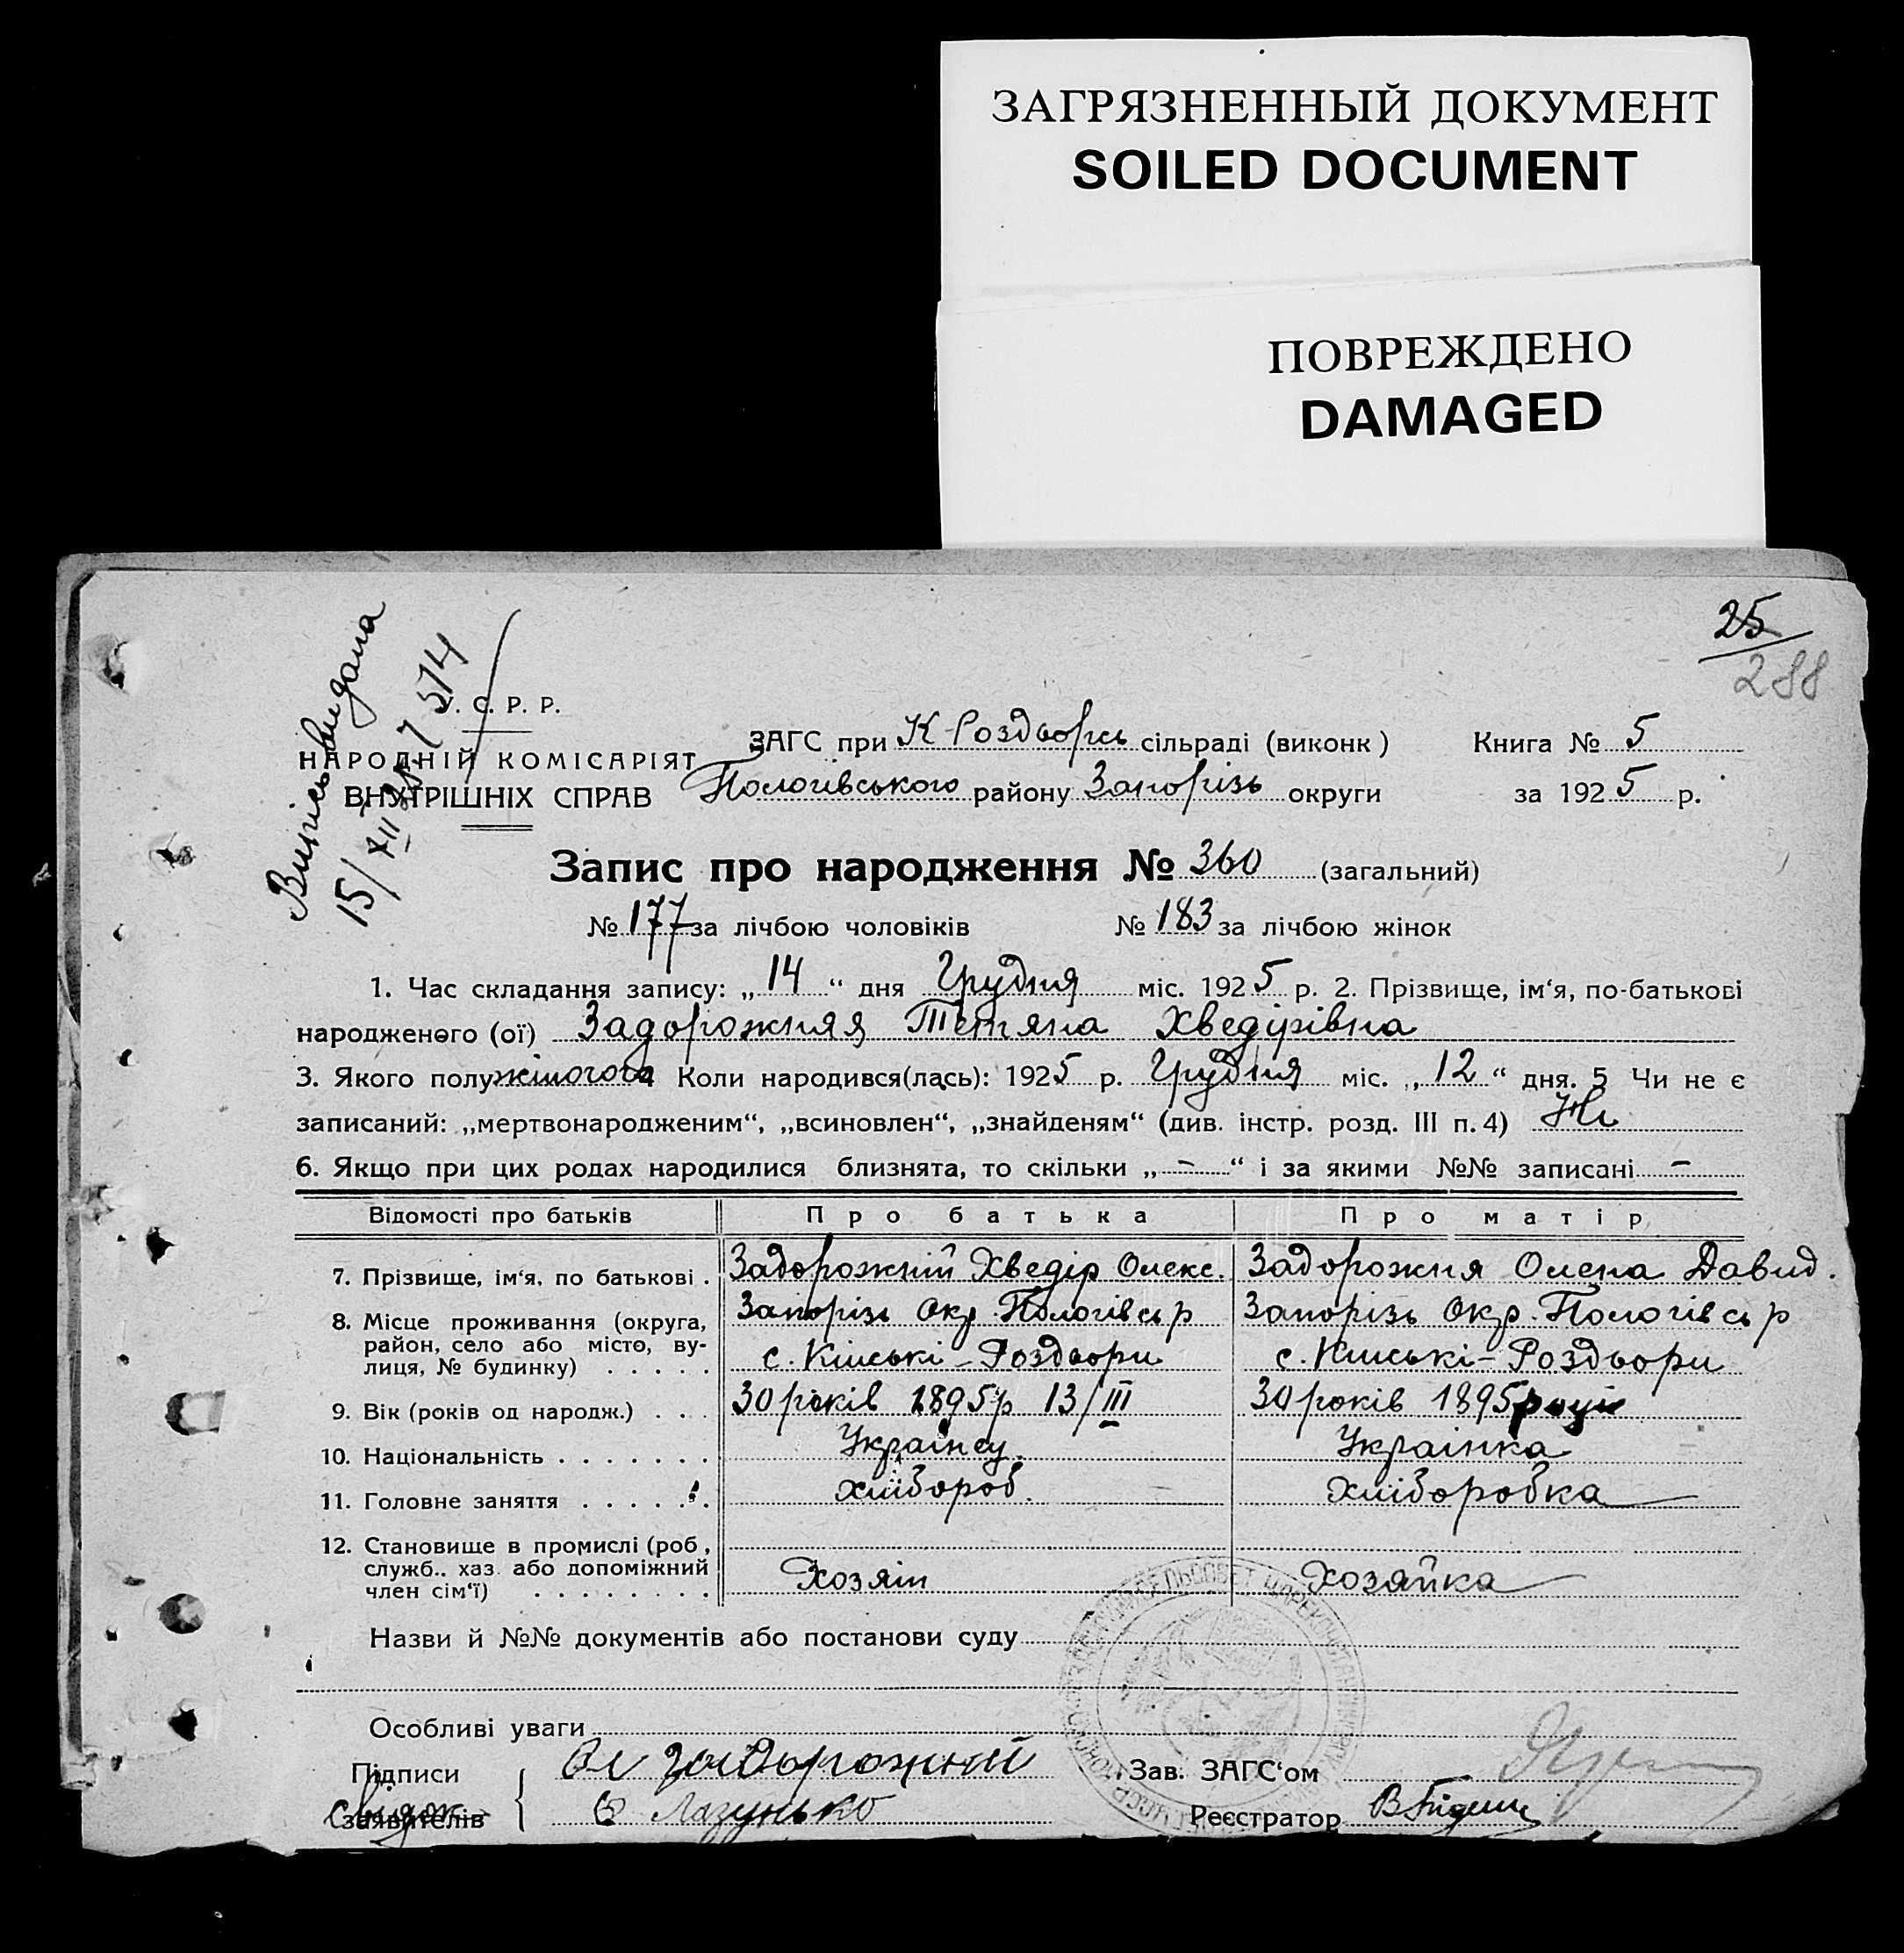 ЗАГРЯЗНЕННЫЙ ДОКУМЕНТ
SOILED DOCUMENT
ПОВРЕЖДЕНО
DAMAGED
25
288
Випись видана
15/XII
514
У. С. Р. Р.
НАРОДНІЙ КОМІСАРІЯТ
ВНУТРІШНІХ СПРАВ
ЗАГС при К-Роздорсь сільраді (виконк) Книга № 5
Пологівського району Запорізь округи за 1925 р.
Запис про народження № 360 (загальний)
№ 177 за лічбою чоловіків № 183 за лічбою жінок
1. Час складання запису: „14“ дня Грудня міс. 1925 р. 2. Прізвище, ім‘я, по-батькові
народженого (ої) Задорожняя Тетяна Хведірівна
3. Якого полу жіночого 4 Коли народився(лась): 1925 р. Грудня міс. „12“ дня. 5 Чи не є
записаний: „мертвонародженим“, „всиновлен“, „знайденям“ (див. інстр. розд. III п. 4) Ні
6. Якщо при цих родах народилися близнята, то скільки „-“ і за якими №№ записані -
Відомості про батьків Про батька Про матір
7. Прізвище, ім‘я, по батькові . Задорожній Хведір Олекс. Задорожня Олена Давид.
8. Місце проживання (округа, район, село або місто, вулиця, № будинку) . . . . . Запорізь Окр. Пологівсь р Запорізь Окр. Пологівсь р
с. Кінські-Роздори с. Кінські-Роздори
9. Вік (років од народж.) . . . 30 років 1895р 13/III 30 років 1895 року
10. Національність . . . . . . . Українец. Українка
11. Головне заняття . . . . . . хлібороб. хліборобка
12. Становище в промислі (роб, служб.. хаз. або допоміжний член сім‘ї) . . . . . . . . Хозяін Хозяйка
Назви й №№ документів або постанови суду
Особливі уваги
Підписи Ол Задорожній Зав. ЗАГС‘ом
заявителів Лазунько Реєстратор